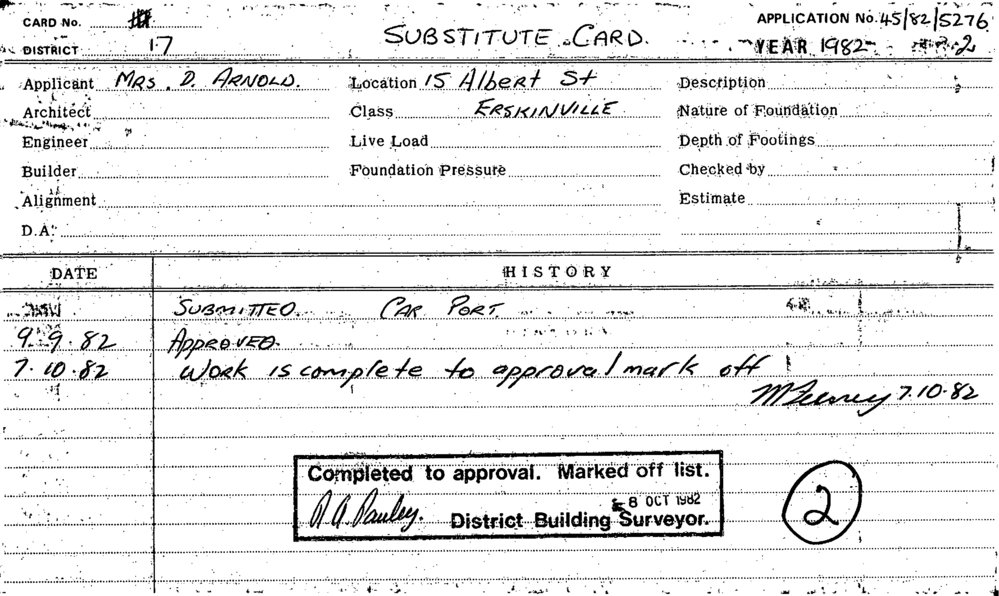 CARD No.
SUBSTITUTE CARD.
APPLICATION No. 45/82/5276
DISTRICT 17
YEAR 1982 2
Applicant MRS. D. ARNOLD. Location 15 Albert St Description
Architect Class ERSKINVILLE Nature of Foundation
Engineer Live Load Depth of Footings
Builder Foundation Pressure Checked by
Alignment Estimate
D.A.
DATE HISTORY
SUBMITTED. CAR PORT.
9.9.82 APPROVED.
7.10.82 Work is complete to approval mark off
7.10.82
Completed to approval. Marked off list.
8 OCT 1982
District Building Surveyor.
2